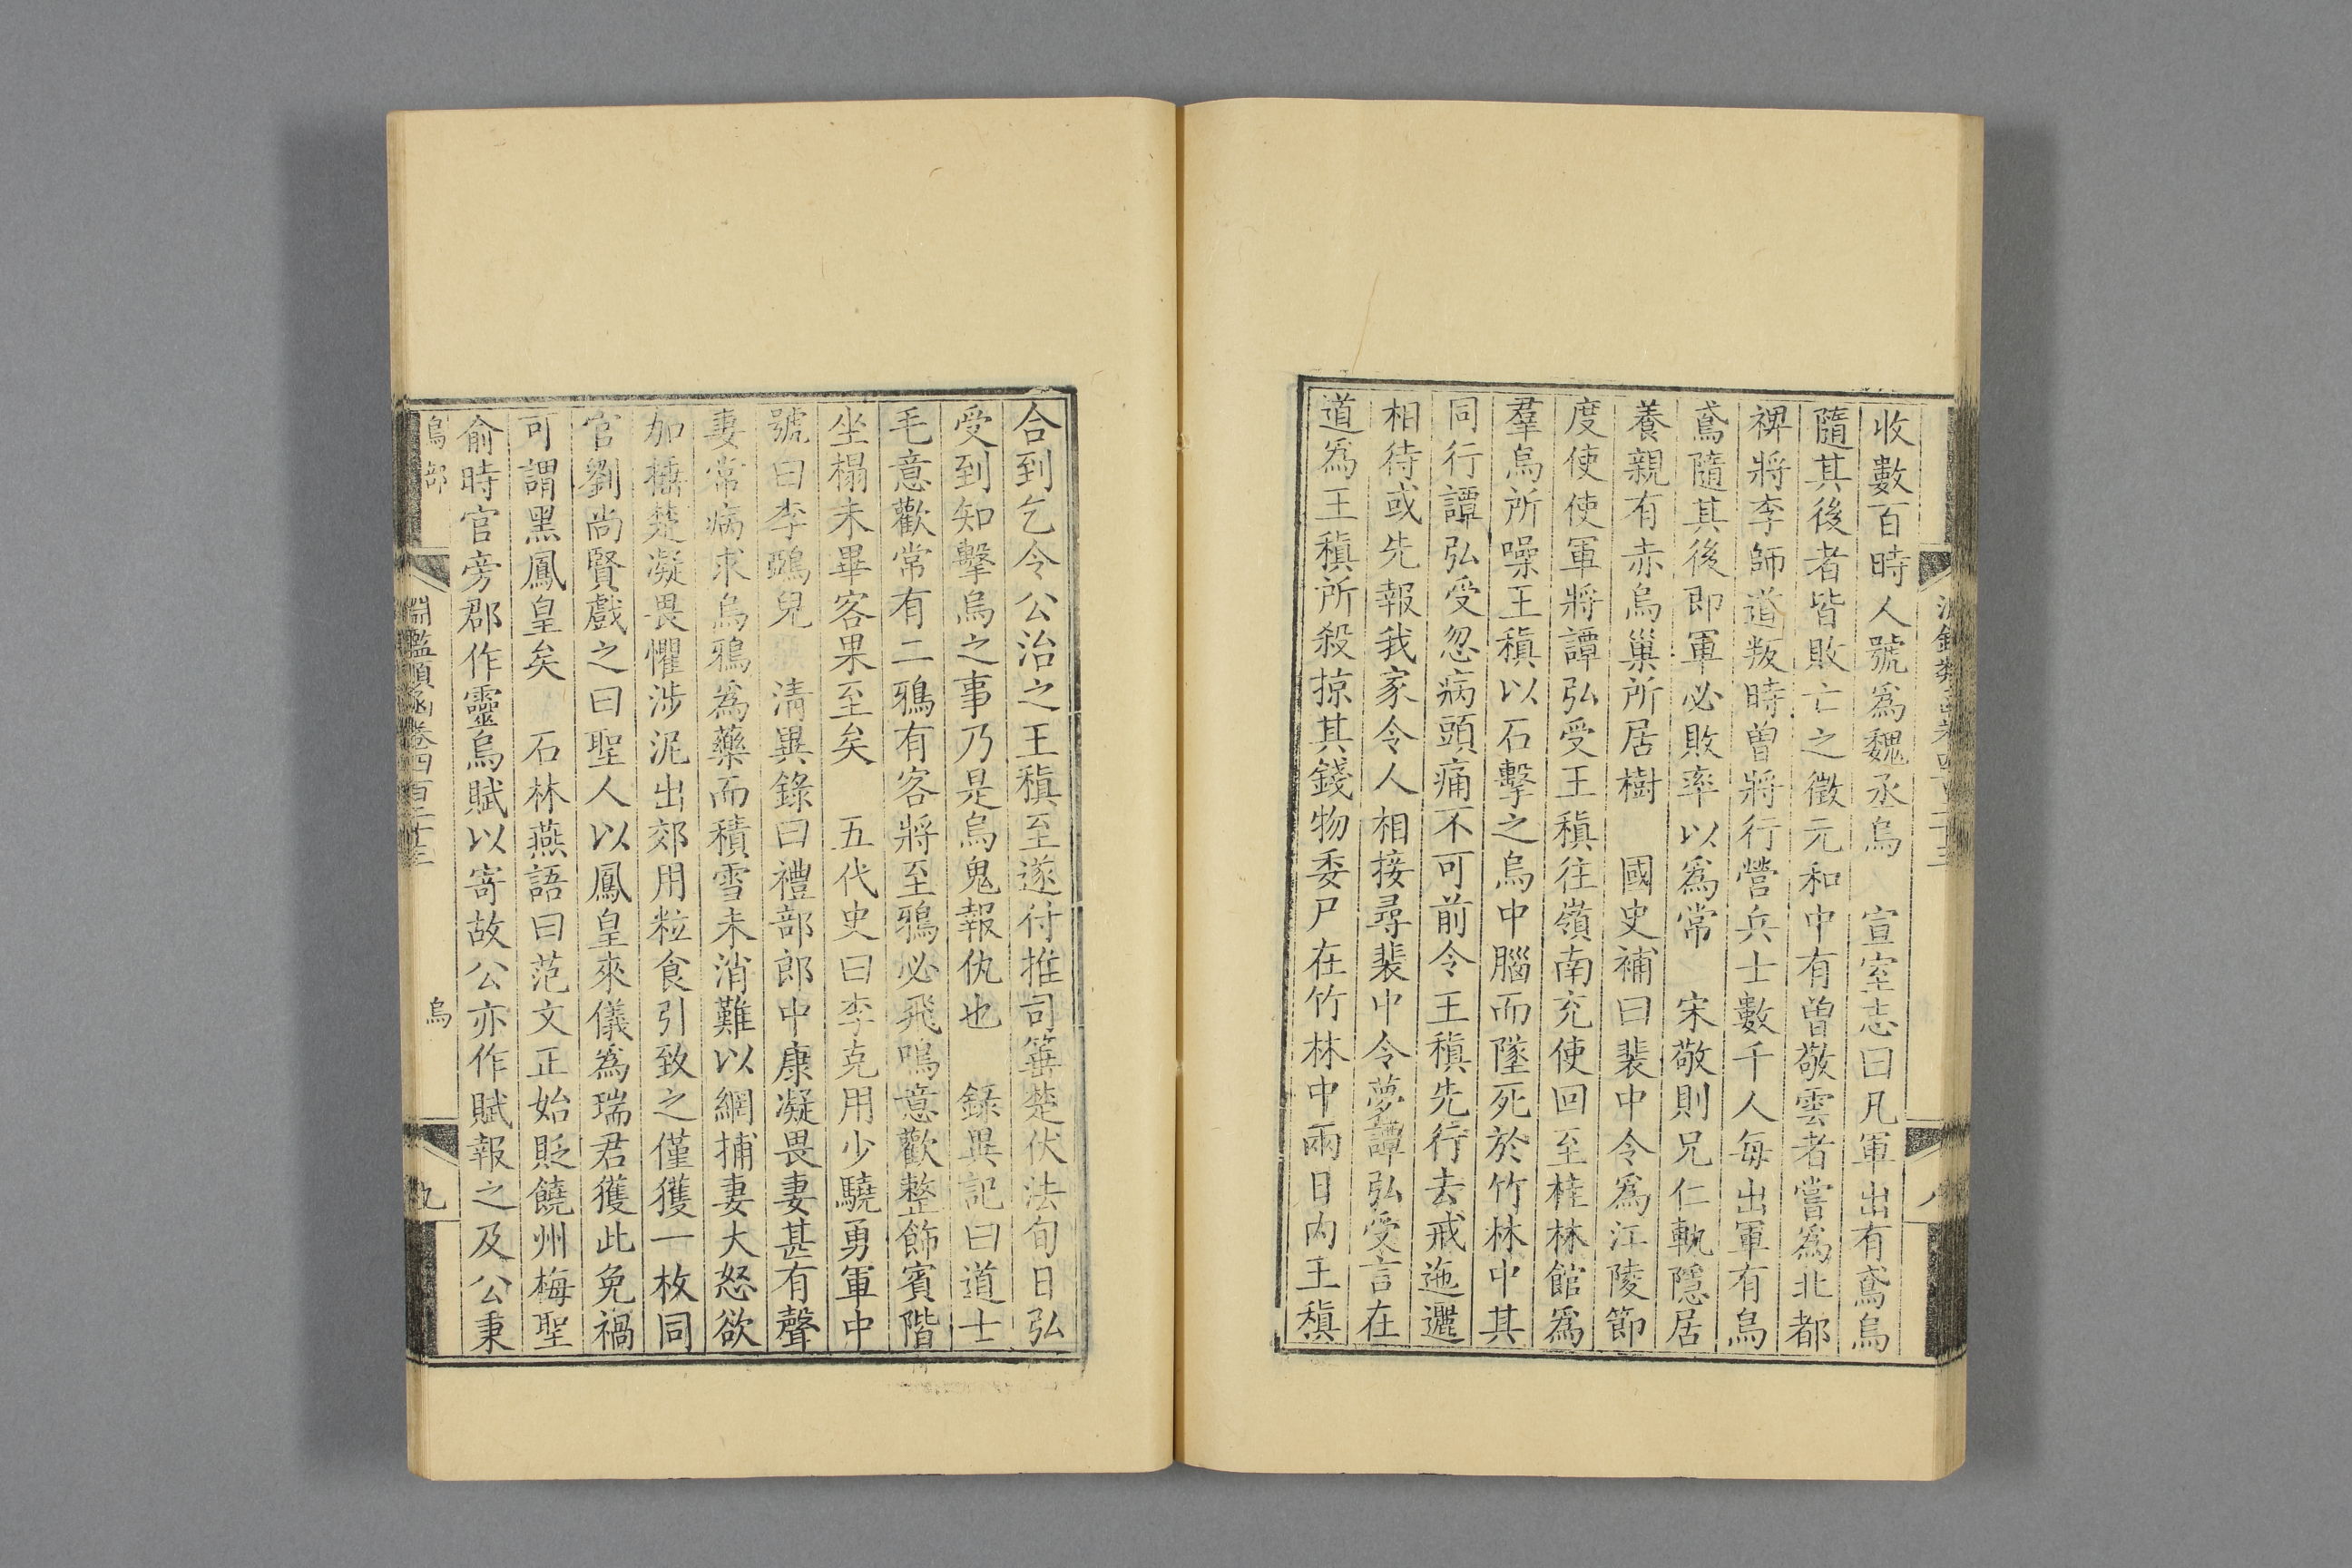 收數百時人號爲魏丞烏　宣室志曰凡軍出有鳶烏
隨其後者皆敗亡之徵元和中有曾敬雲者嘗爲北都
裨將李師道叛時曾將行營兵士數千人每出軍有烏
鳶隨其後即軍必敗率以爲常　宋敬則兄仁軌隱居
養親有赤烏巢所居樹　國史補曰裴中令爲江陵節
度使使軍將譚弘受王稹往嶺南充使回至桂林館爲
羣烏所噪王稹以石擊之烏中腦而墜死於竹林中其
同行譚弘受忽病頭痛不可前令王稹先行去戒迤邐
相待或先報我家令人相接尋裴中令夢譚弘受言在
道爲王稹所殺掠其錢物委尸在竹林中兩日內王稹
合到乞令公治之王稹至遂付推司箠楚伏法旬日弘
受到知擊烏之事乃是烏鬼報仇也　錄異記曰道士
毛意歡常有二鴉有客將至鴉必飛鳴意歡整飾賓階
坐榻未畢客果至矣　五代史曰李克用少驍勇軍中
號曰李鵶兒　清異錄曰禮部郎中康凝畏妻甚有聲
妻常病求烏鴉爲藥而積雪未消難以網捕妻大怒欲
加捶楚凝畏懼涉泥出郊用粒食引致之僅獲一枚同
官劉尚賢戲之曰聖人以鳳皇來儀爲瑞君獲此免禍
可謂黑鳳皇矣　石林燕語曰范文正始貶饒州梅聖
俞時官旁郡作靈烏賦以寄故公亦作賦報之及公秉
鳥部　淵鑑類函卷四百二十三　烏　九